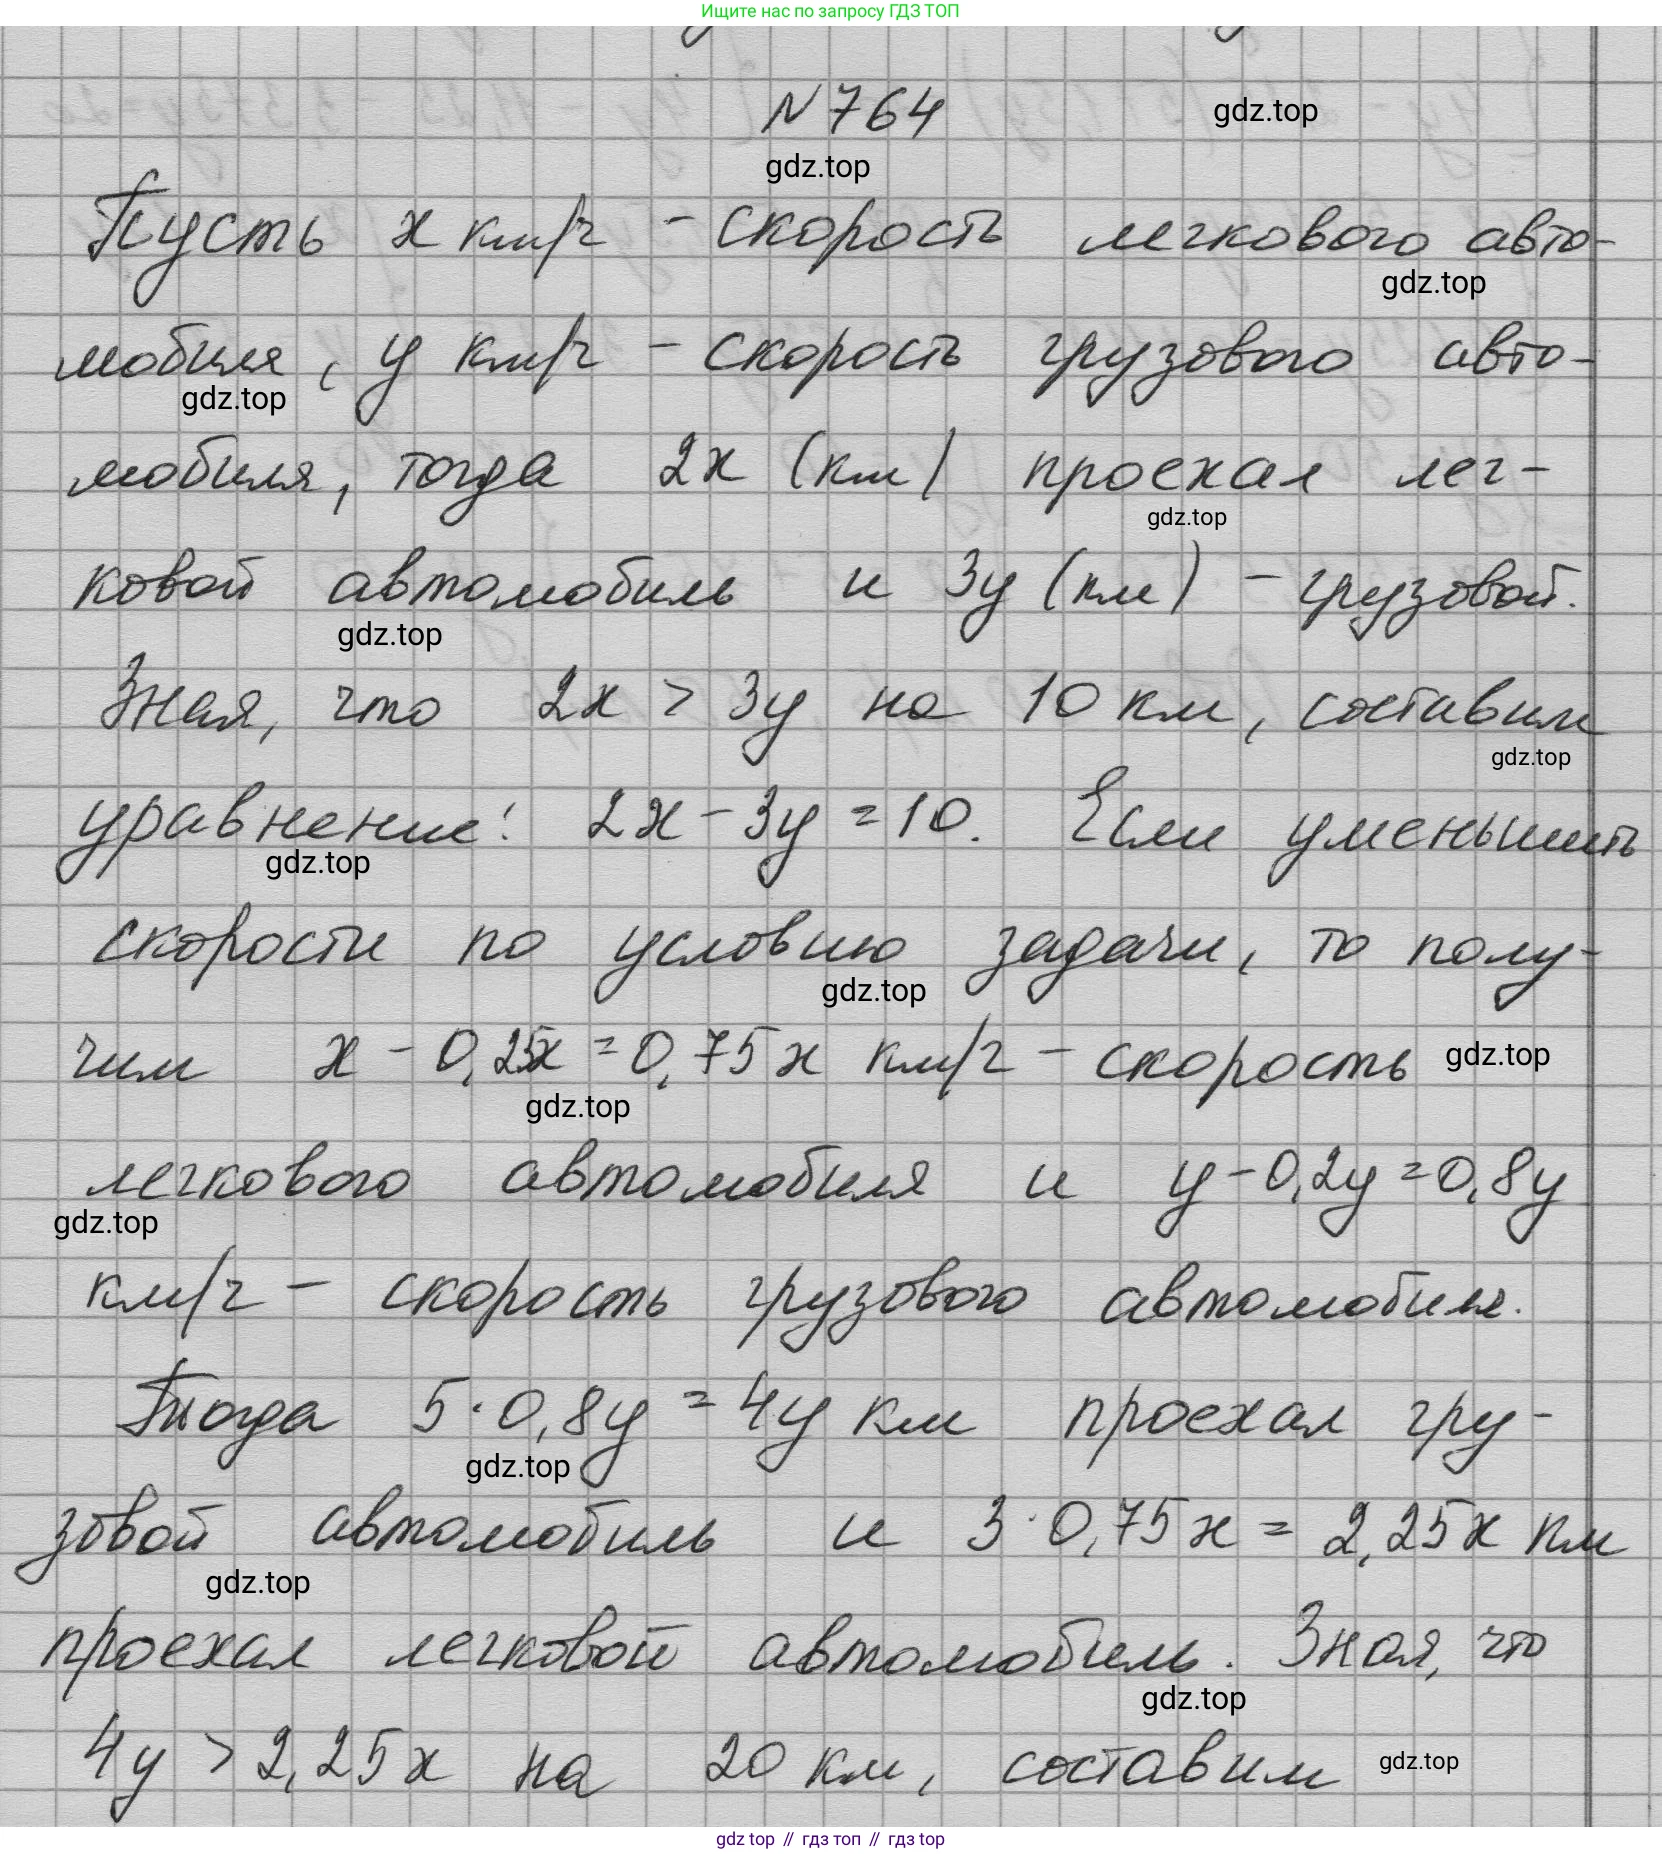 Ищите нас по запросу ГДЗ ТОП
N 764
gdz.top
gdz.top
Пусть x км/ч - скорость легкового авто-
gdz.top
мобиля, y км/ч - скорость грузового авто-
gdz.top
мобиля, тогда 2x (км) проехал лег-
gdz.top
ковой автомобиль и 3y (км) - грузовой.
gdz.top
Зная, что 2x > 3y на 10 км, составим
gdz.top
уравнение: 2x - 3y = 10. Если уменьшить
gdz.top
скорости по условию задачи, то полу-
gdz.top
чим x - 0,25x = 0,75x км/ч - скорость
gdz.top
gdz.top
легкового автомобиля и y - 0,2y = 0,8y
gdz.top
км/ч - скорость грузового автомобиля.
Тогда 5 · 0,8y = 4y км проехал гру-
gdz.top
зовой автомобиль и 3 · 0,75x = 2,25x км
gdz.top
проехал легковой автомобиль. Зная, что
gdz.top
4y > 2,25x на 20 км, составим
gdz.top
gdz top // гдз топ // гдз top